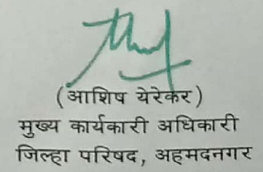 (आशिष येरेकर)
मुख्य कार्यकारी अधिकारी
जिल्हा परिषद, अहमदनगर